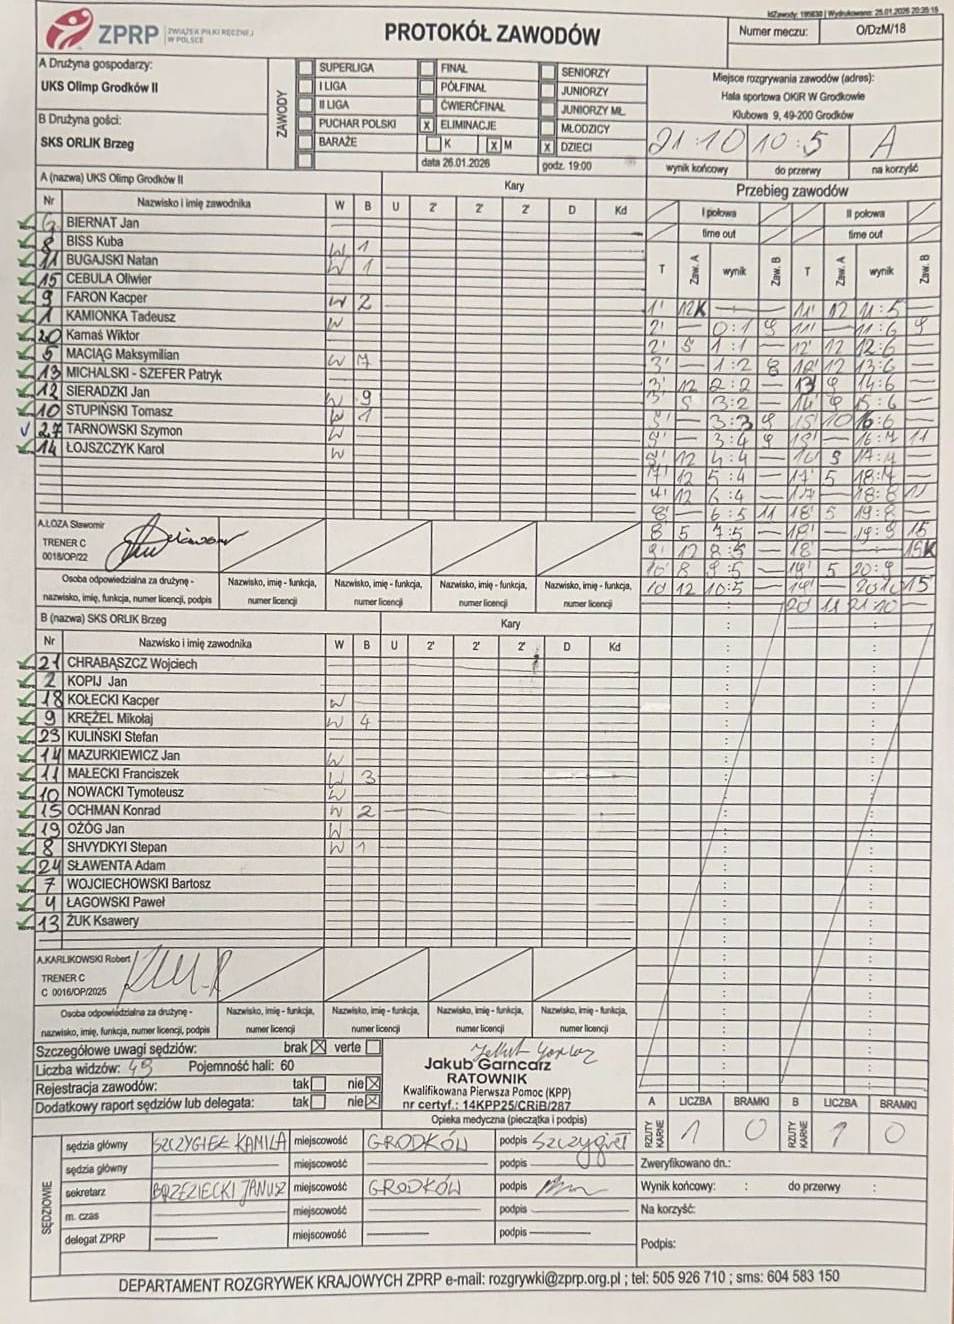 IdZawody: 195830 | Wydrukowano: 25.01.2026 20:35:15
ZPRP ZWIĄZEK PIŁKI RĘCZNEJ W POLSCE
PROTOKÓŁ ZAWODÓW
Numer meczu: O/DzM/18
A Drużyna gospodarzy:
UKS Olimp Grodków II
B Drużyna gości:
SKS ORLIK Brzeg
ZAWODY
SUPERLIGA FINAŁ SENIORZY
I LIGA PÓŁFINAŁ JUNIORZY
II LIGA ĆWIERĆFINAŁ JUNIORZY MŁ.
PUCHAR POLSKI X ELIMINACJE MŁODZICY
BARAŻE K X M X DZIECI
data 26.01.2026 godz. 19:00
Miejsce rozgrywania zawodów (adres):
Hala sportowa OKiR W Grodkowie
Klubowa 9, 49-200 Grodków
21:10 10:5 A
wynik końcowy do przerwy na korzyść
A (nazwa) UKS Olimp Grodków II Kary
Nr Nazwisko i imię zawodnika W B U 2' 2' 2' D Kd
BIERNAT Jan
8 BISS Kuba W 1
11 BUGAJSKI Natan W 1
15 CEBULA Oliwier
9 FARON Kacper W 2
1 KAMIONKA Tadeusz W
20 Kamaś Wiktor
5 MACIĄG Maksymilian W 7
13 MICHALSKI - SZEFER Patryk
12 SIERADZKI Jan W 9
10 STUPIŃSKI Tomasz W 1
27 TARNOWSKI Szymon W
14 ŁOJSZCZYK Karol W
A.ŁOZA Sławomir
TRENER C
0018/OP/22
Osoba odpowiedzialna za drużynę - nazwisko, imię, funkcja, numer licencji, podpis
Nazwisko, imię - funkcja, numer licencji
Nazwisko, imię - funkcja, numer licencji
Nazwisko, imię - funkcja, numer licencji
Nazwisko, imię - funkcja, numer licencji
B (nazwa) SKS ORLIK Brzeg Kary
Nr Nazwisko i imię zawodnika W B U 2' 2' 2' D Kd
21 CHRABĄSZCZ Wojciech
2 KOPIJ Jan
18 KOŁECKI Kacper W
9 KRĘŻEL Mikołaj W 4
23 KULIŃSKI Stefan
14 MAZURKIEWICZ Jan W
11 MAŁECKI Franciszek W 3
10 NOWACKI Tymoteusz W
15 OCHMAN Konrad W 2
19 OŻÓG Jan W
8 SHVYDKYI Stepan W 1
24 SŁAWENTA Adam
7 WOJCIECHOWSKI Bartosz
4 ŁAGOWSKI Paweł
13 ŻUK Ksawery
A.KARLIKOWSKI Robert
TRENER C
C 0016/OP/2025
Osoba odpowiedzialna za drużynę - nazwisko, imię, funkcja, numer licencji, podpis
Nazwisko, imię - funkcja, numer licencji
Nazwisko, imię - funkcja, numer licencji
Nazwisko, imię - funkcja, numer licencji
Nazwisko, imię - funkcja, numer licencji
Przebieg zawodów
I połowa II połowa
time out time out
T Zaw. A wynik Zaw. B T Zaw. A wynik Zaw. B
1' 12K — — 11' 12 11:5
2' — 0:1 9 11' — 11:6 9
2' 5 1:1 — 12' 12 12:6
3' — 1:2 8 12 13:6
3' 12 2:2 — 13' 9 14:6
5 3:2 — 14' 9 15:6
— 3:3 9 15' 10 16:6
— 3:4 9 — 16:7 11
12 4:4 — 5 17:7
12 5:4 — 17' 5 18:7
12 6:4 — 17' — 18:8 11
8' — 6:5 11 18' 5 19:8
8 5 7:5 — 18' — 19:9 15
9' 12 8:5 — 18' — 15K
10' 8 9:5 — 19' 5 20:9
10 12 10:5 — 19' — 20:10 15
20 11 21:10
Szczegółowe uwagi sędziów: brak X verte
Liczba widzów: Pojemność hali: 60
Rejestracja zawodów: tak nie X
Dodatkowy raport sędziów lub delegata: tak nie X
Jakub Garncarz
RATOWNIK
Kwalifikowana Pierwsza Pomoc (KPP)
nr certyf.: 14KPP25/CRiB/287
Opieka medyczna (pieczątka i podpis)
A LICZBA BRAMKI B LICZBA BRAMKI
RZUTY KARNE 1 0 RZUTY KARNE 1 0
SĘDZIOWIE
sędzia główny SZCZYGIEŁ KAMILA miejscowość GRODKÓW podpis Szczygieł
sędzia główny miejscowość podpis
sekretarz BRZEZIECKI JANUSZ miejscowość GRODKÓW podpis
m. czas miejscowość podpis
delegat ZPRP miejscowość podpis
Zweryfikowano dn.:
Wynik końcowy: : do przerwy :
Na korzyść:
Podpis:
DEPARTAMENT ROZGRYWEK KRAJOWYCH ZPRP e-mail: rozgrywki@zprp.org.pl ; tel: 505 926 710 ; sms: 604 583 150